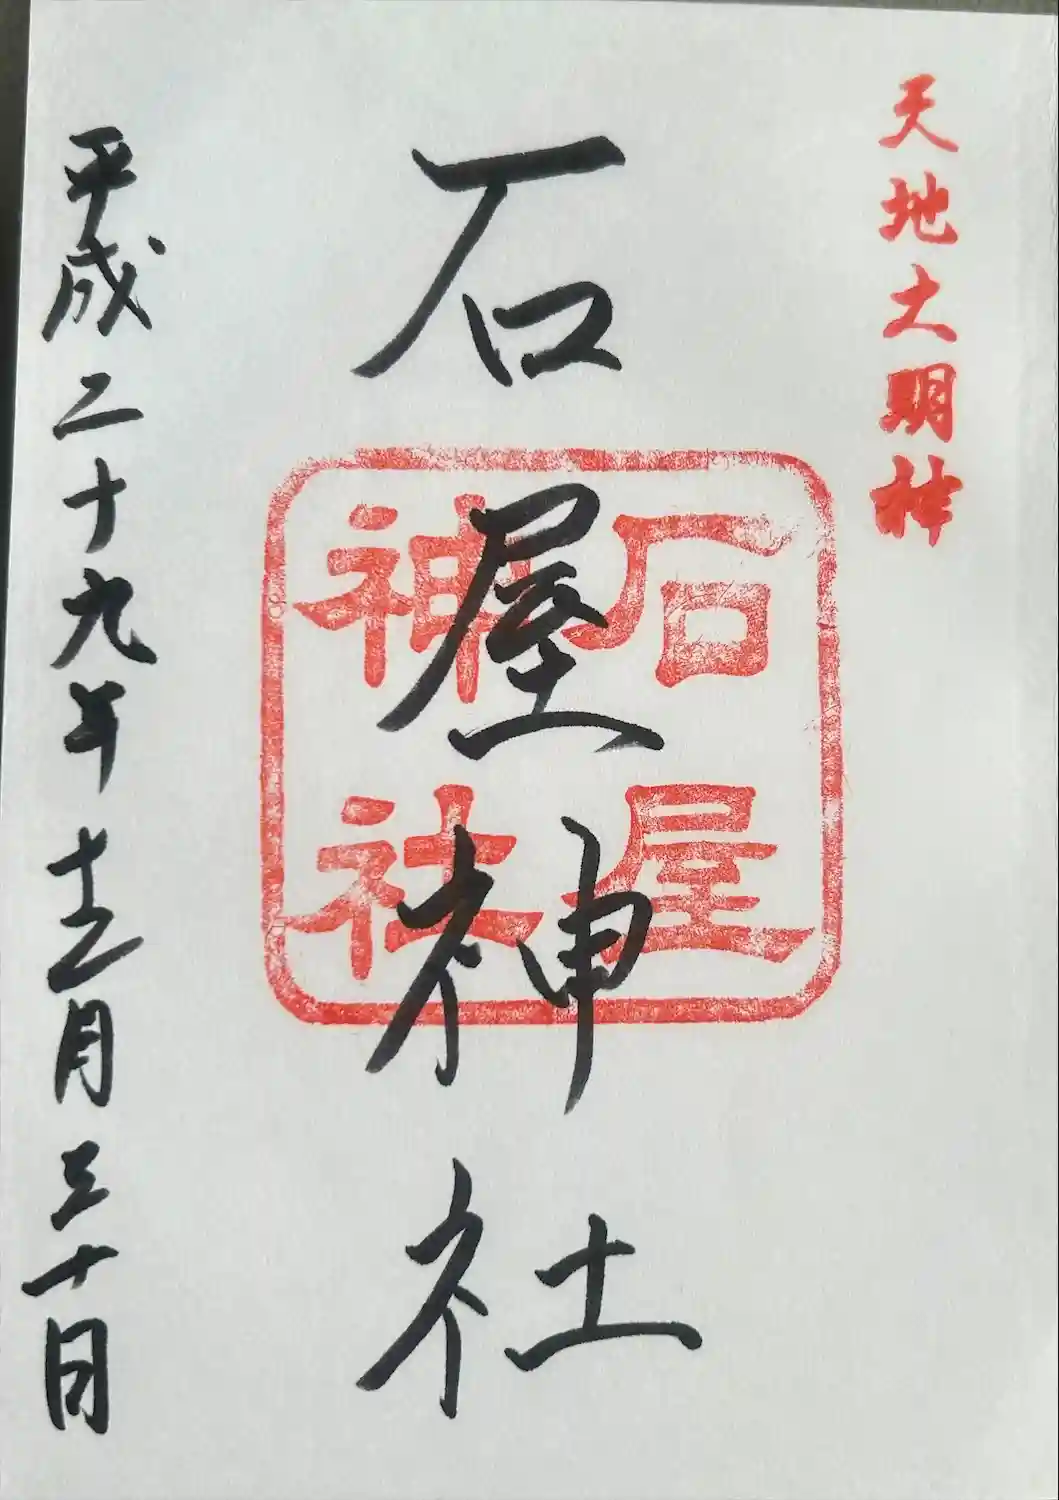 天地大明神
石屋神社
石屋
神社
平成二十九年十二月三十日